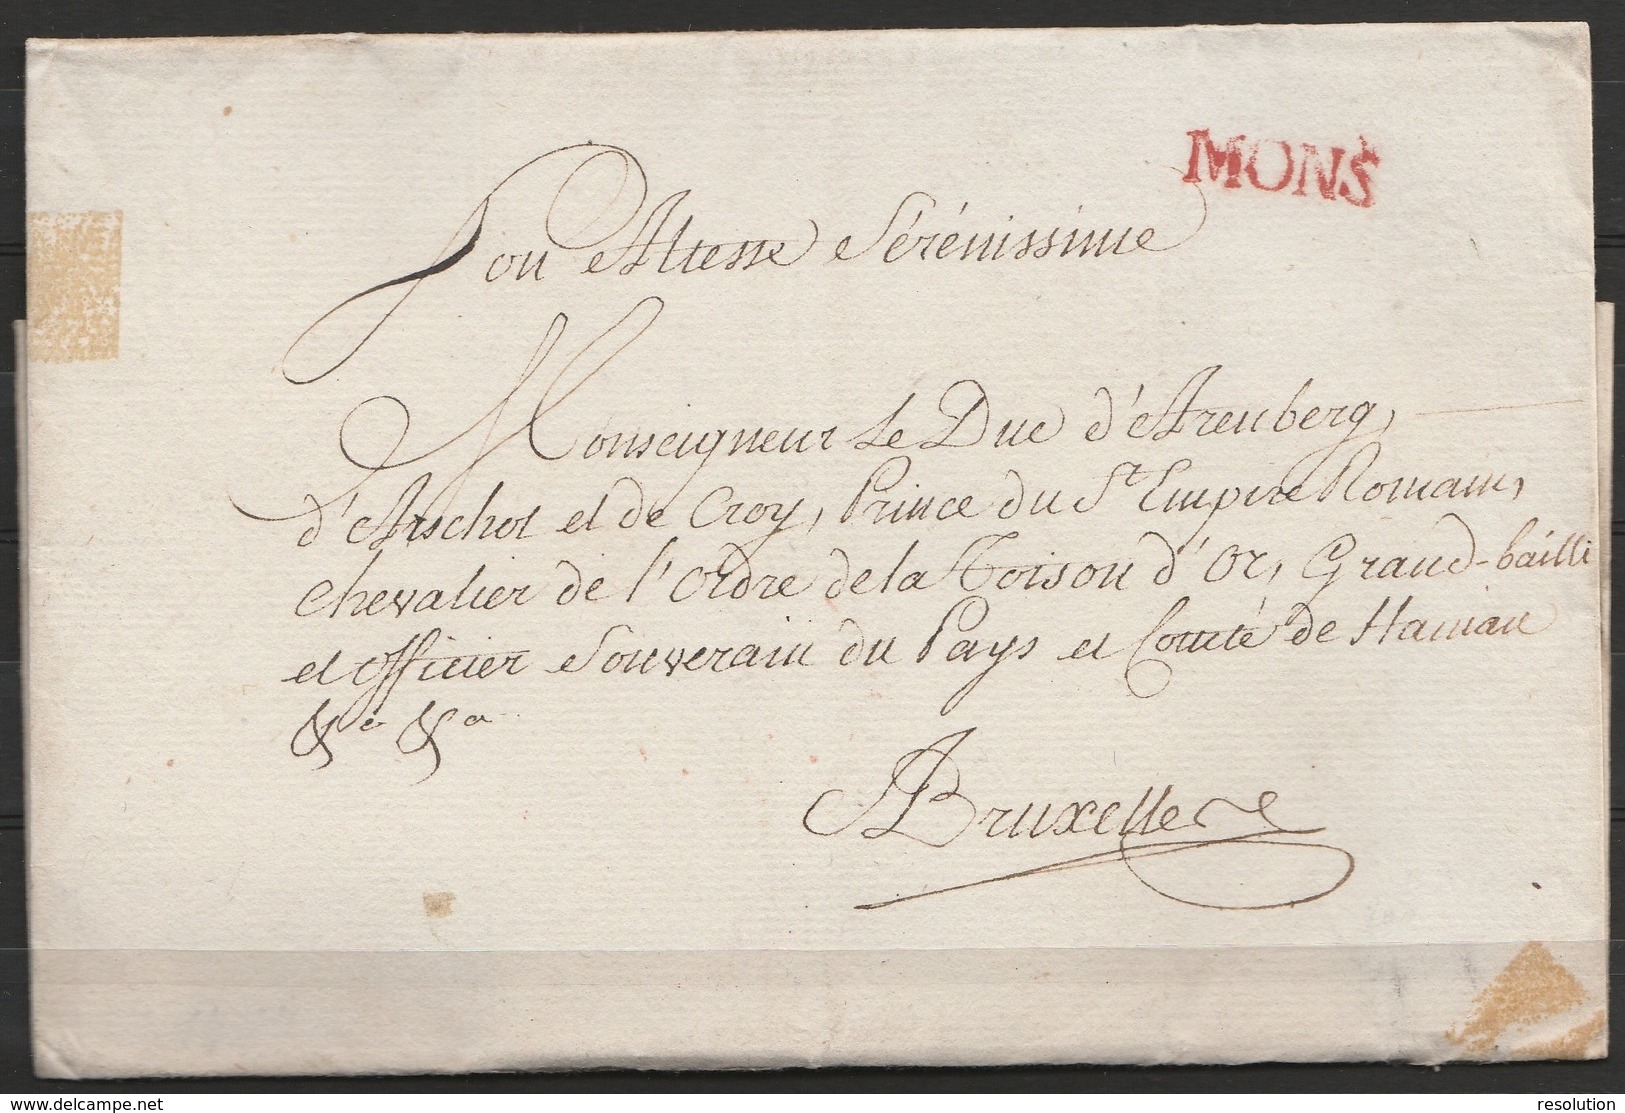 MONS
Son Altesse Sérénissime
Monseigneur Le Duc d'Arenberg,
d'Arschot et de Croy, Prince du St Empire Romain,
Chevalier de l'Ordre de la Toison d'Or, Grand-bailli
et officier Souverain du Pays et Comté de Hainau
&a &a
A Bruxelles
www.delcampe.net
resolution